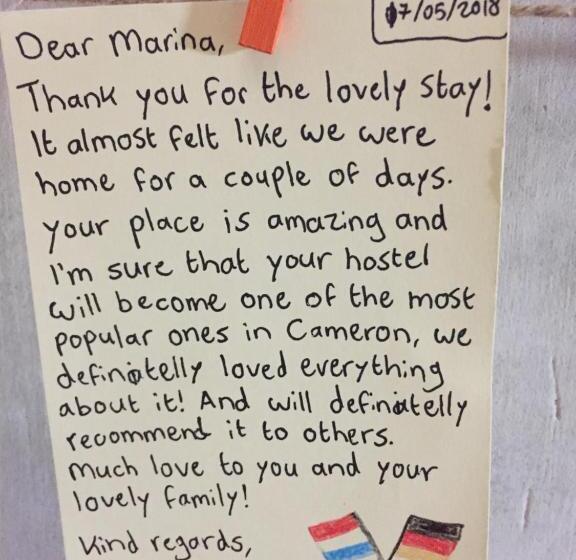 07/05/2018
Dear Marina,
Thank you for the lovely stay!
It almost felt like we were
home for a couple of days.
your place is amazing and
I'm sure that your hostel
will become one of the most
popular ones in Cameron, we
definitelly loved everything
about it! And will definitelly
recommend it to others.
Much love to you and your
lovely family!
Kind regards,